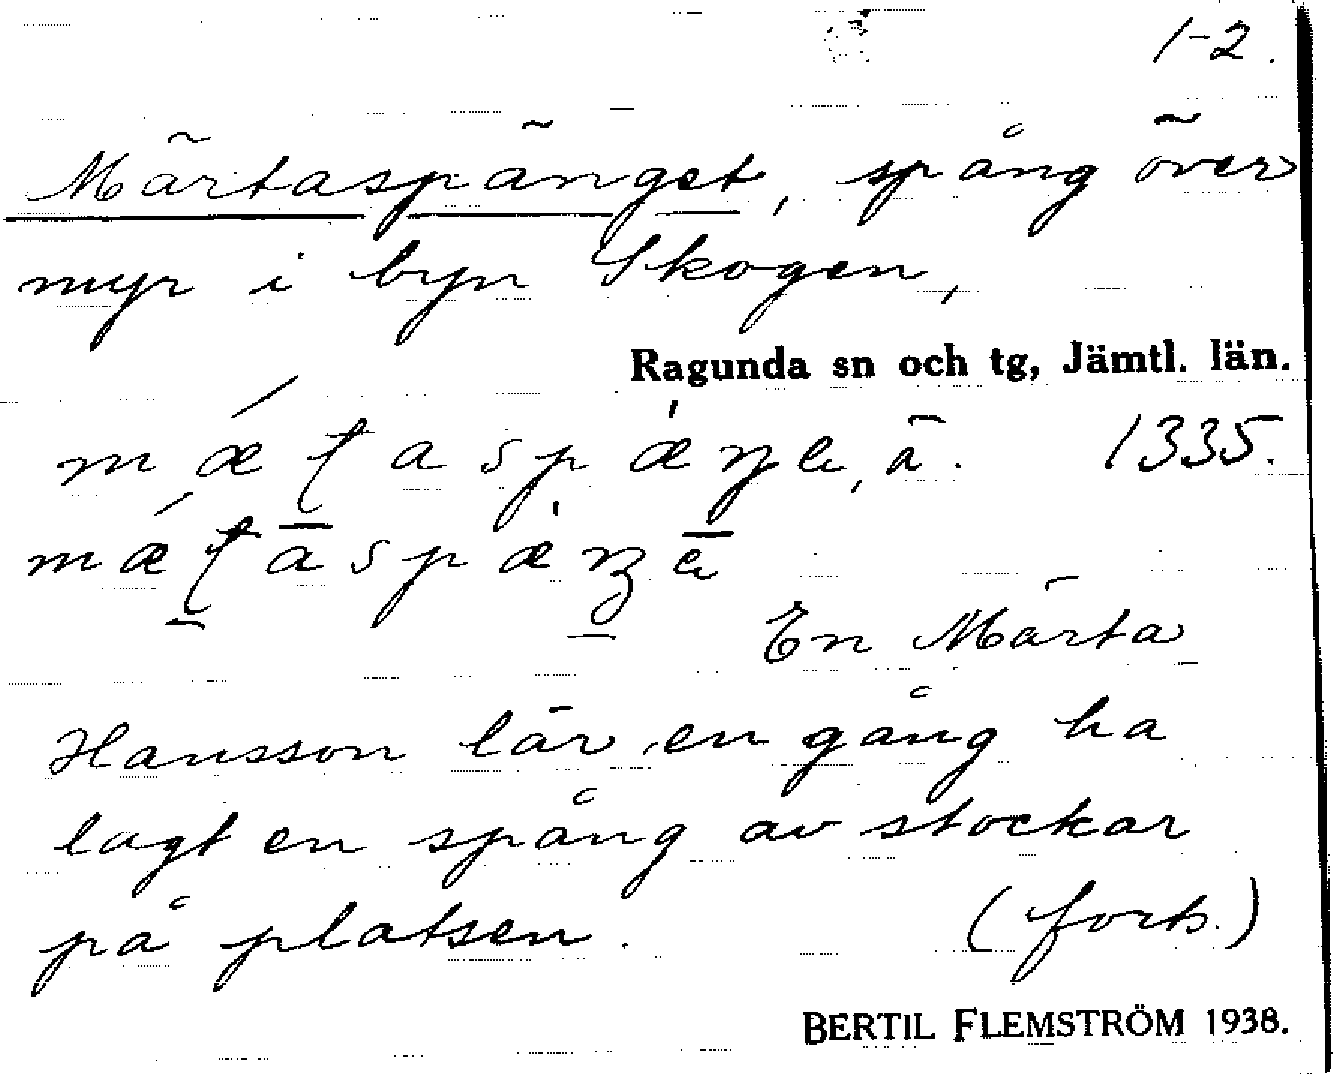 1-2.
Märtaspänget, spång över
myr i byn Skogen,
Ragunda sn och tg, Jämtl. län.
mǽʈaspǽŋe, ā. 1335.
mǽʈaspǽŋe
En Märta
Hansson lär en gång ha
lagt en spång av stockar
på platsen. (forts.)
BERTIL FLEMSTRÖM 1938.